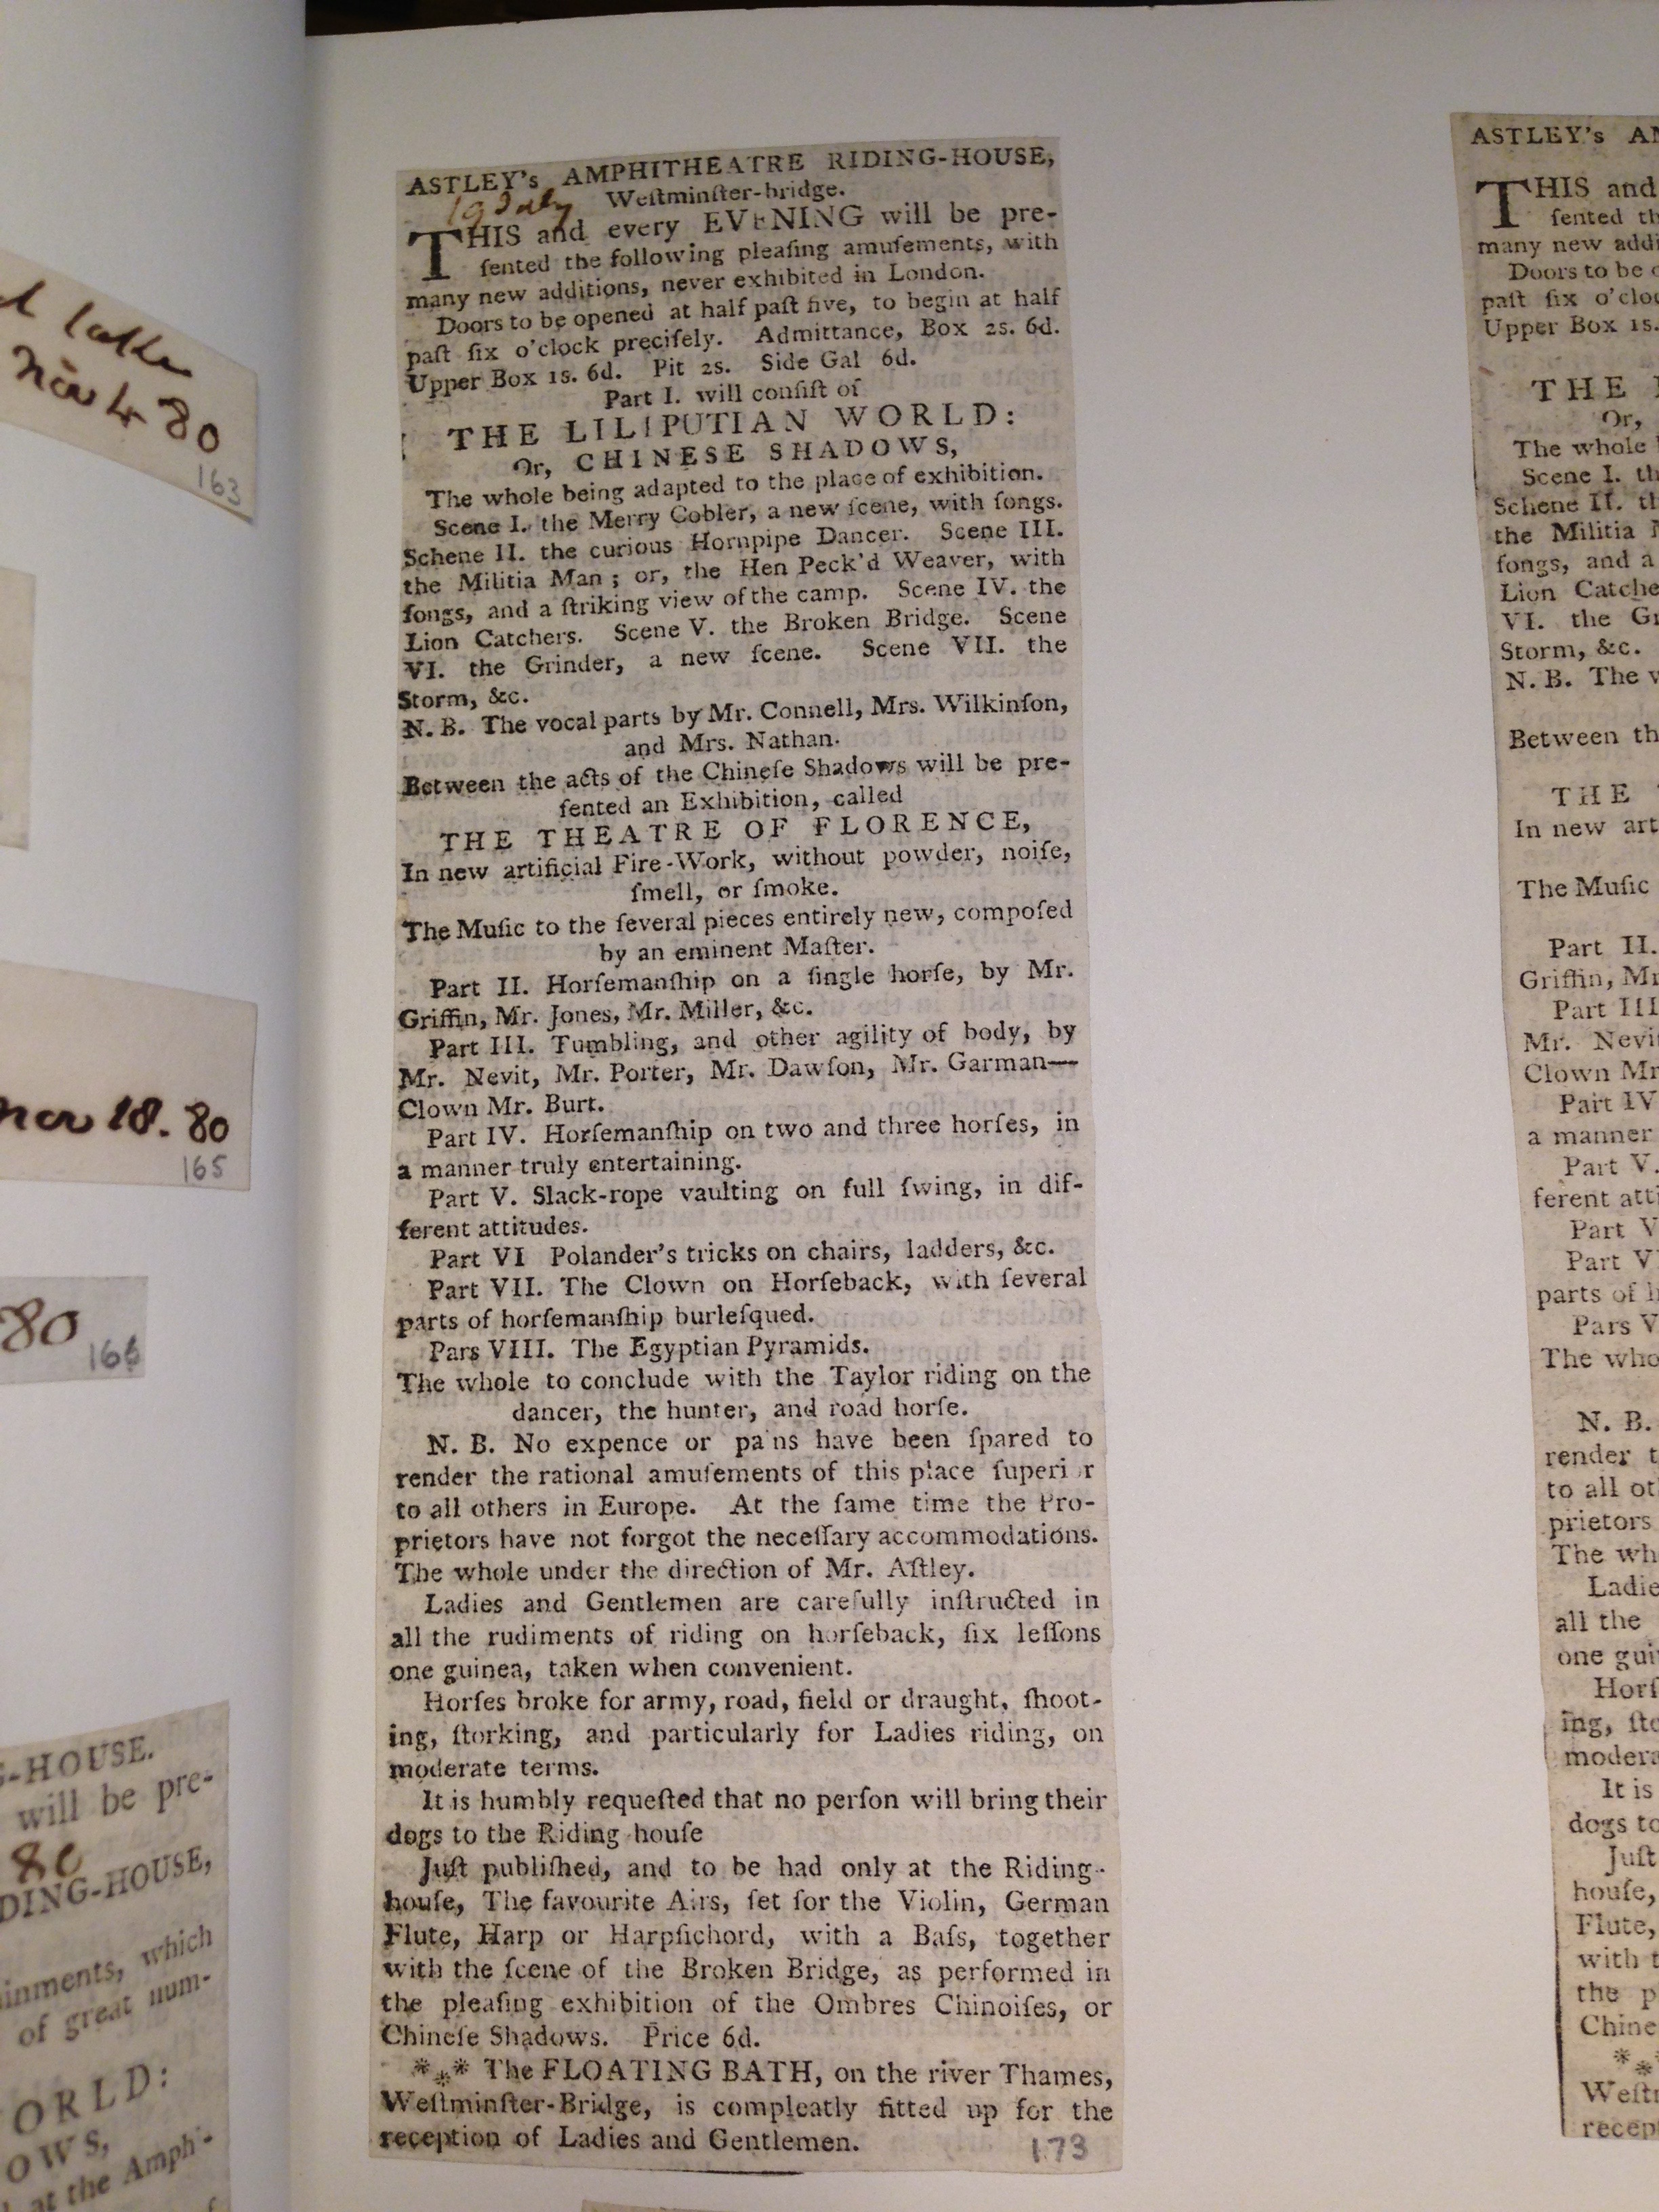 d latke
Nov 4 80
163
nov 18. 80
165
80
166
G-HOUSE.
will be pre-
80
DING-HOUSE,
inments, which
of great num-
ORLD:
OWS,
at the Amph-
ASTLEY's AMPHITHEATRE RIDING-HOUSE,
Weſtminſter-bridge.
19 July
THIS and every EVENING will be pre-
ſented the following pleaſing amuſements, with
many new additions, never exhibited in London.
Doors to be opened at half paſt five, to begin at half
paſt ſix o'clock preciſely. Admittance, Box 2s. 6d.
Upper Box 1s. 6d. Pit 2s. Side Gal 6d.
Part I. will conſiſt of
THE LILIPUTIAN WORLD:
Or, CHINESE SHADOWS,
The whole being adapted to the place of exhibition.
Scene I. the Merry Cobler, a new ſcene, with ſongs.
Schene II. the curious Hornpipe Dancer. Scene III.
the Militia Man; or, the Hen Peck'd Weaver, with
ſongs, and a ſtriking view of the camp. Scene IV. the
Lion Catchers. Scene V. the Broken Bridge. Scene
VI. the Grinder, a new ſcene. Scene VII. the
Storm, &c.
N. B. The vocal parts by Mr. Connell, Mrs. Wilkinſon,
and Mrs. Nathan.
Between the acts of the Chineſe Shadows will be pre-
ſented an Exhibition, called
THE THEATRE OF FLORENCE,
In new artificial Fire-Work, without powder, noiſe,
ſmell, or ſmoke.
The Muſic to the ſeveral pieces entirely new, compoſed
by an eminent Maſter.
Part II. Horſemanſhip on a ſingle horſe, by Mr.
Griffin, Mr. Jones, Mr. Miller, &c.
Part III. Tumbling, and other agility of body, by
Mr. Nevit, Mr. Porter, Mr. Dawſon, Mr. Garman—
Clown Mr. Burt.
Part IV. Horſemanſhip on two and three horſes, in
a manner truly entertaining.
Part V. Slack-rope vaulting on full ſwing, in dif-
ferent attitudes.
Part VI Polander's tricks on chairs, ladders, &c.
Part VII. The Clown on Horſeback, with ſeveral
parts of horſemanſhip burleſqued.
Pars VIII. The Egyptian Pyramids.
The whole to conclude with the Taylor riding on the
dancer, the hunter, and road horſe.
N. B. No expence or pains have been ſpared to
render the rational amuſements of this place ſuperior
to all others in Europe. At the ſame time the Pro-
prietors have not forgot the neceſſary accommodations.
The whole under the direction of Mr. Aſtley.
Ladies and Gentlemen are carefully inſtructed in
all the rudiments of riding on horſeback, ſix leſſons
one guinea, taken when convenient.
Horſes broke for army, road, field or draught, ſhoot-
ing, ſtorking, and particularly for Ladies riding, on
moderate terms.
It is humbly requeſted that no perſon will bring their
dogs to the Riding-houſe
Juſt publiſhed, and to be had only at the Riding-
houſe, The favourite Airs, ſet for the Violin, German
Flute, Harp or Harpſichord, with a Baſs, together
with the ſcene of the Broken Bridge, as performed in
the pleaſing exhibition of the Ombres Chinoiſes, or
Chineſe Shadows. Price 6d.
*** The FLOATING BATH, on the river Thames,
Weſtminſter-Bridge, is compleatly fitted up for the
reception of Ladies and Gentlemen.
173
ASTLEY's AM
THIS and
ſented th
many new addi
Doors to be o
paſt ſix o'cloc
Upper Box 1s.
THE
Or,
The whole
Scene I. th
Schene II. th
the Militia M
ſongs, and a
Lion Catche
VI. the Gr
Storm, &c.
N. B. The v
Between th
THE
In new art
The Muſic
Part II.
Griffin, Mr
Part III
Mr. Nevit
Clown Mr
Part IV
a manner
Part V.
ferent atti
Part V
Part V
parts of h
Pars V
The who
N. B.
render t
to all ot
prietors
The wh
Ladie
all the
one gui
Horſ
ing, ſto
modera
It is
dogs to
Juſt
houſe,
Flute,
with t
the p
Chine
***
Weſt
recep